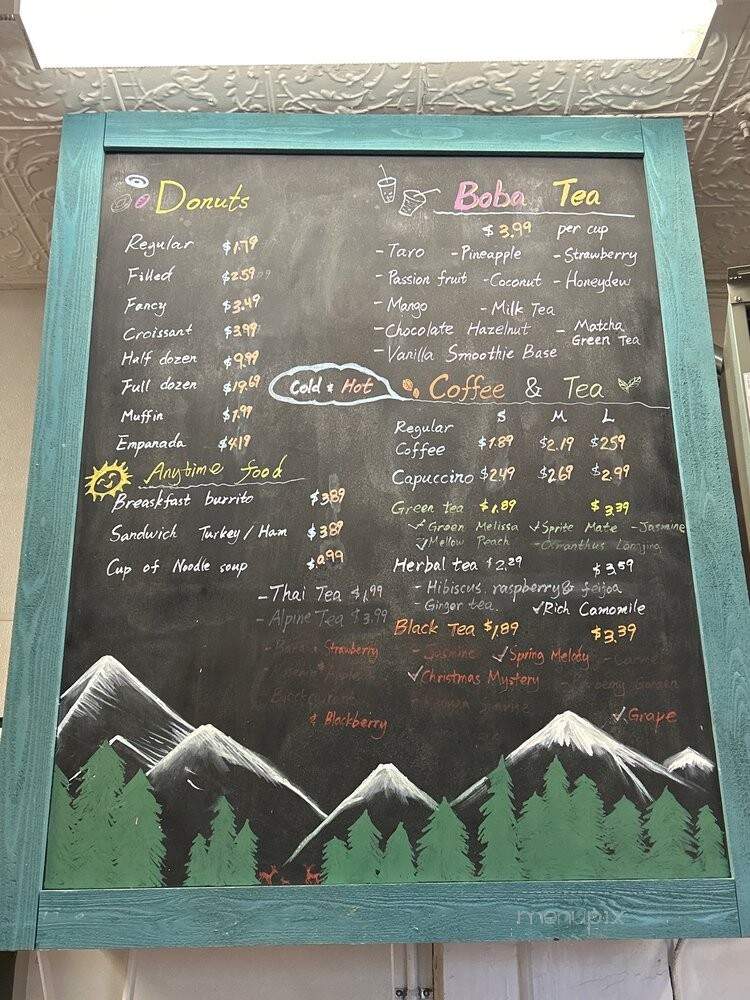 Donuts
Regular $1.79
Filled $2.59
Fancy $3.49
Croissant $3.99
Half dozen $9.99
Full dozen $19.69
Muffin $1.99
Empanada $4.19
Anytime food
Breaskfast burrito $3.89
Sandwich Turkey/Ham $3.89
Cup of Noodle soup $2.99
- Thai Tea $1.99
- Alpine Tea $3.99
Strawberry
& Blackberry
Boba Tea
$3.99 per cup
- Taro - Pineapple - Strawberry
- Passion fruit - Coconut - Honeydew
- Mango - Milk Tea
- Chocolate Hazelnut - Matcha Green Tea
- Vanilla Smoothie Base
Cold & Hot
Coffee & Tea
S M L
Regular
Coffee $1.89 $2.19 $2.59
Capuccino $2.49 $2.69 $2.99
Green tea $1.89 $3.39
✓ Green Melissa ✓ Sprite Mate - Jasmine
✓ Mellow Peach
Herbal tea $2.29 $3.59
- Hibiscus. raspberry & feijoa
- Ginger tea. ✓ Rich Camomile
Black Tea $1,89 $3.39
- Jasmine ✓ Spring Melody
✓ Christmas Mystery
✓ Grape
menupix